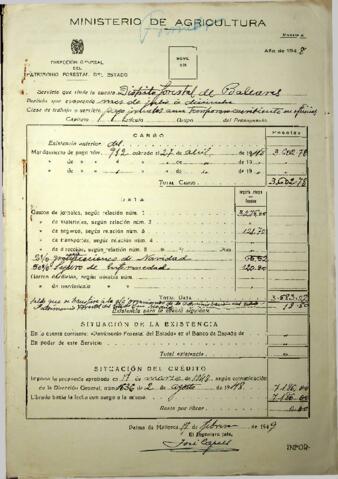 MINISTERIO DE AGRICULTURA
Año de 1948
DIRECCIÓN GENERAL
DEL
PATRIMONIO FORESTAL DEL ESTADO
Servicio que rinde la cuenta Distrito Forestal de Baleares
Período que comprende mes de Julio a diciembre
Clase de trabajo o servicio pago jornales
Capítulo Artículo Grupo del Presupuesto
CARGO
Pesetas
Existencia anterior
Mandamiento de pago núm. 912 cobrado 27 de abril de 1948 3.602,78
TOTAL CARGO 3.602,78
DATA
Gastos de jornales, según relación núm. 1
de materiales, según relación núm. 2
de seguros, según relación núm. 3 121,70
de transportes, según relación núm. 4
de dirección, según relación núm. 5
gratificaciones de Navidad
Seguro de Enfermedad
TOTAL DATA
Existencia para la cuenta siguiente
SITUACIÓN DE LA EXISTENCIA
En la cuenta corriente «Patrimonio Forestal del Estado» en el Banco de España de
En poder de este Servicio
TOTAL existencia
SITUACIÓN DEL CRÉDITO
Importe la propuesta aprobada en 17 de marzo de 1948, según comunicación
de la Dirección General, 1636 de 2 de agosto de 1948 7.186,00
Librado hasta la fecha con cargo a la misma 7.186,00
Resta por librar 0,00
Palma de Mallorca 17 de febrero de 1949
El Ingeniero Jefe,
INFOR-